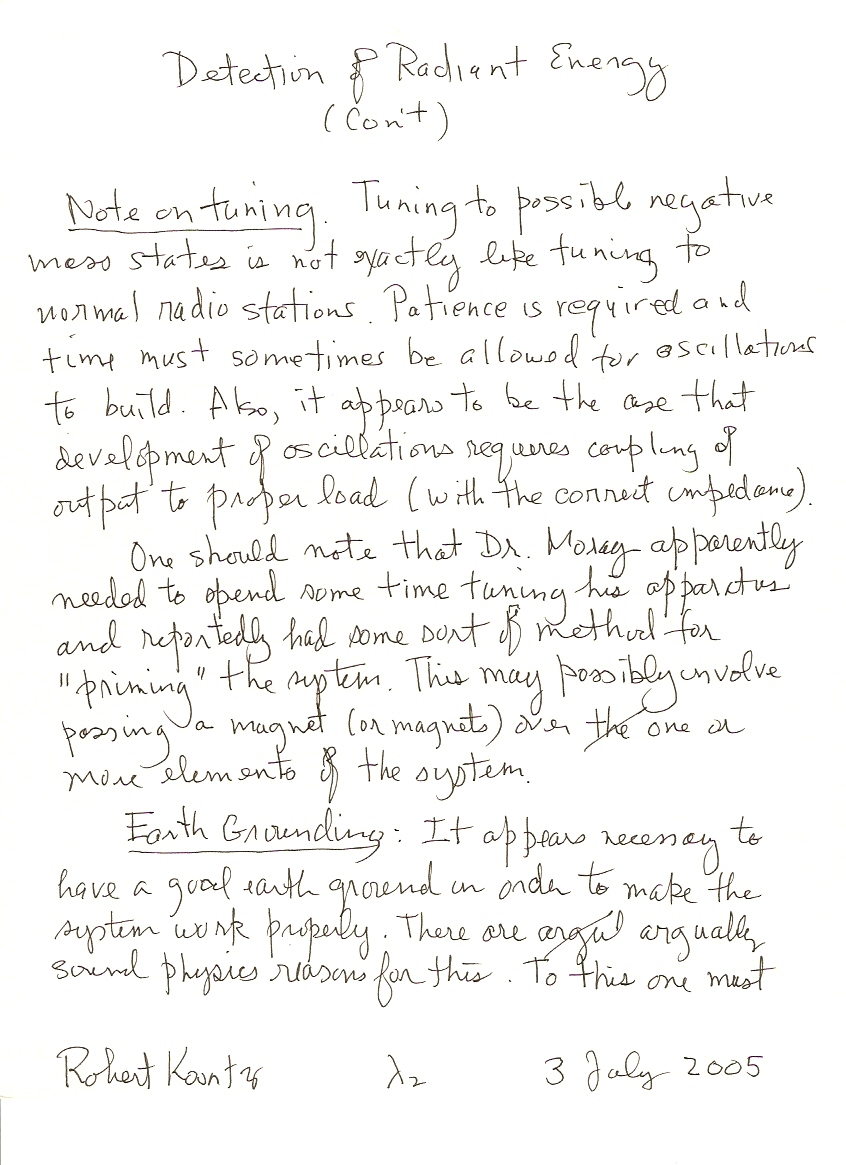 Detection of Radiant Energy
(Con't)
Note on tuning. Tuning to possible negative
mass states is not exactly like tuning to
normal radio stations. Patience is required and
time must sometimes be allowed for oscillations
to build. Also, it appears to be the case that
development of oscillations requires coupling of
output to proper load (with the correct impedance).
One should note that Dr. Moray apparently
needed to spend some time tuning his apparatus
and reportedly had some sort of method for
"priming" the system. This may possibly involve
passing a magnet (or magnets) over the one or
more elements of the system.
Earth Grounding: It appears necessary to
have a good earth ground in order to make the
system work properly. There are argual argually
sound physics reasons for this. To this one must
Robert Koontz λ2 3 July 2005